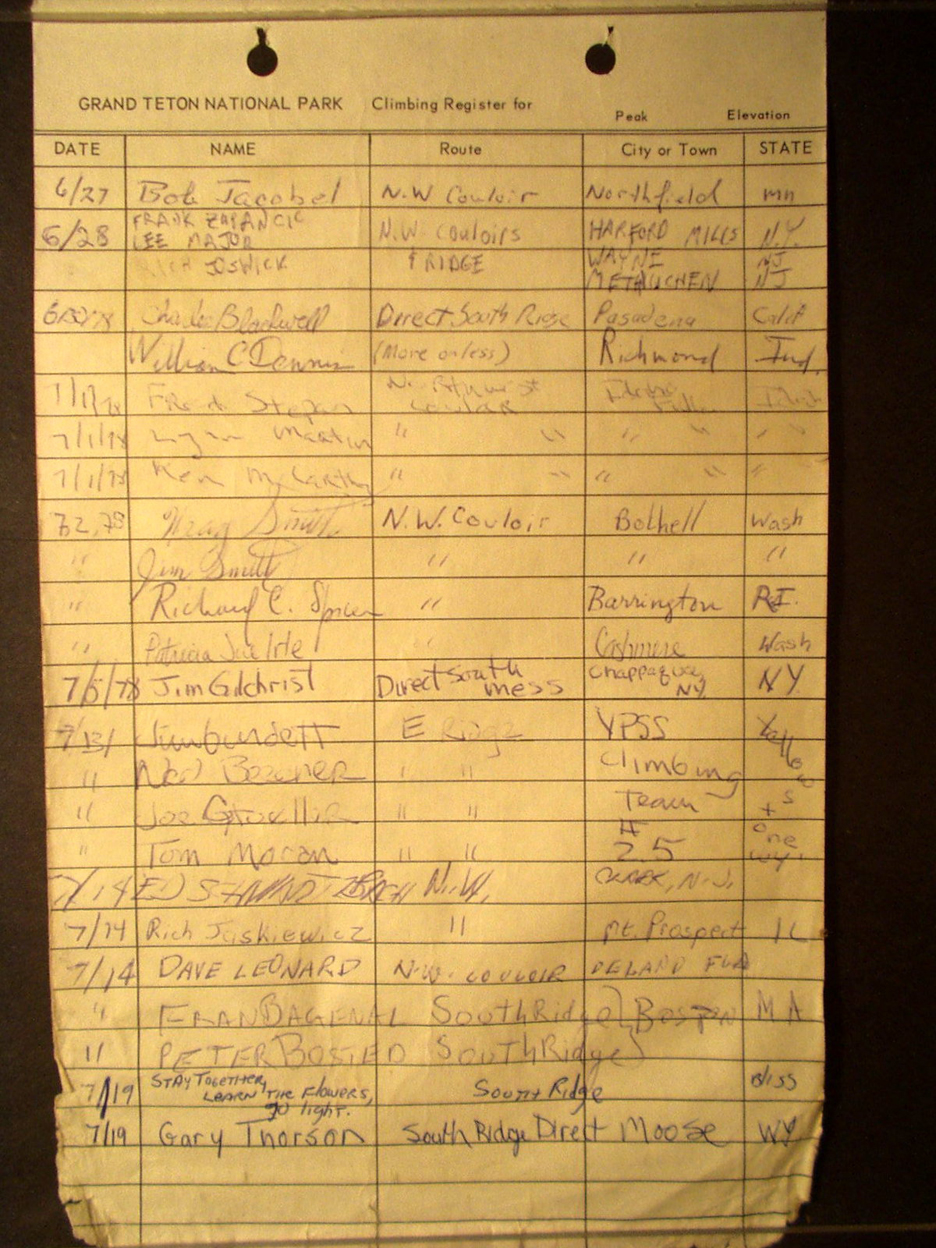 GRAND TETON NATIONAL PARK Climbing Register for
Peak Elevation
DATE NAME Route City or Town STATE
6/27 Bob Jacobel N.W Couloir Northfield mn
6/28 FRANK N.W. Couloirs HARFORD MILLS N.Y.
LEE MAJOR & RIDGE WAYNE NJ
RICH JOSWICK METHUCHEN NJ
Charlie Blackwell Direct South Ridge Pasadena Calif
William C. Dennis (More or less) Richmond Ind.
7/1/78 Stepan Northwest Couloir Idaho Falls Idaho
7/1/78 Lynn Martin " " " " " "
7/1/78 Ken McCarthy " " " " "
7 2, 78 Smith N.W. Couloir Bothell Wash
" Jim Smith " " "
" Richard C. " Barrington R.I.
" Patricia " Cashmere Wash
7/5/78 Jim Gilchrist Direct South mess Chappaqua, NY. NY
7/13/ Jim Burdett E Ridge YPSS Yellowstone Wy.
" Ned " " Climbing
" Joe " " Team
" Tom Moran " " # 2.5
7/14 ED N.W. CLARK, N.J.
7/14 Rich Jaskiewicz " Mt. Prospect IL
7/14 DAVE LEONARD N.W. COULOIR DELAND FLA
" FRAN BAGENAL South Ridge } BOSTON MA
" PETER BOSTED South Ridge }
7/19 STAY TOGETHER, South Ridge Bliss
LEARN THE FLOWERS,
go light.
7/19 Gary Thorson South Ridge Direct Moose WY